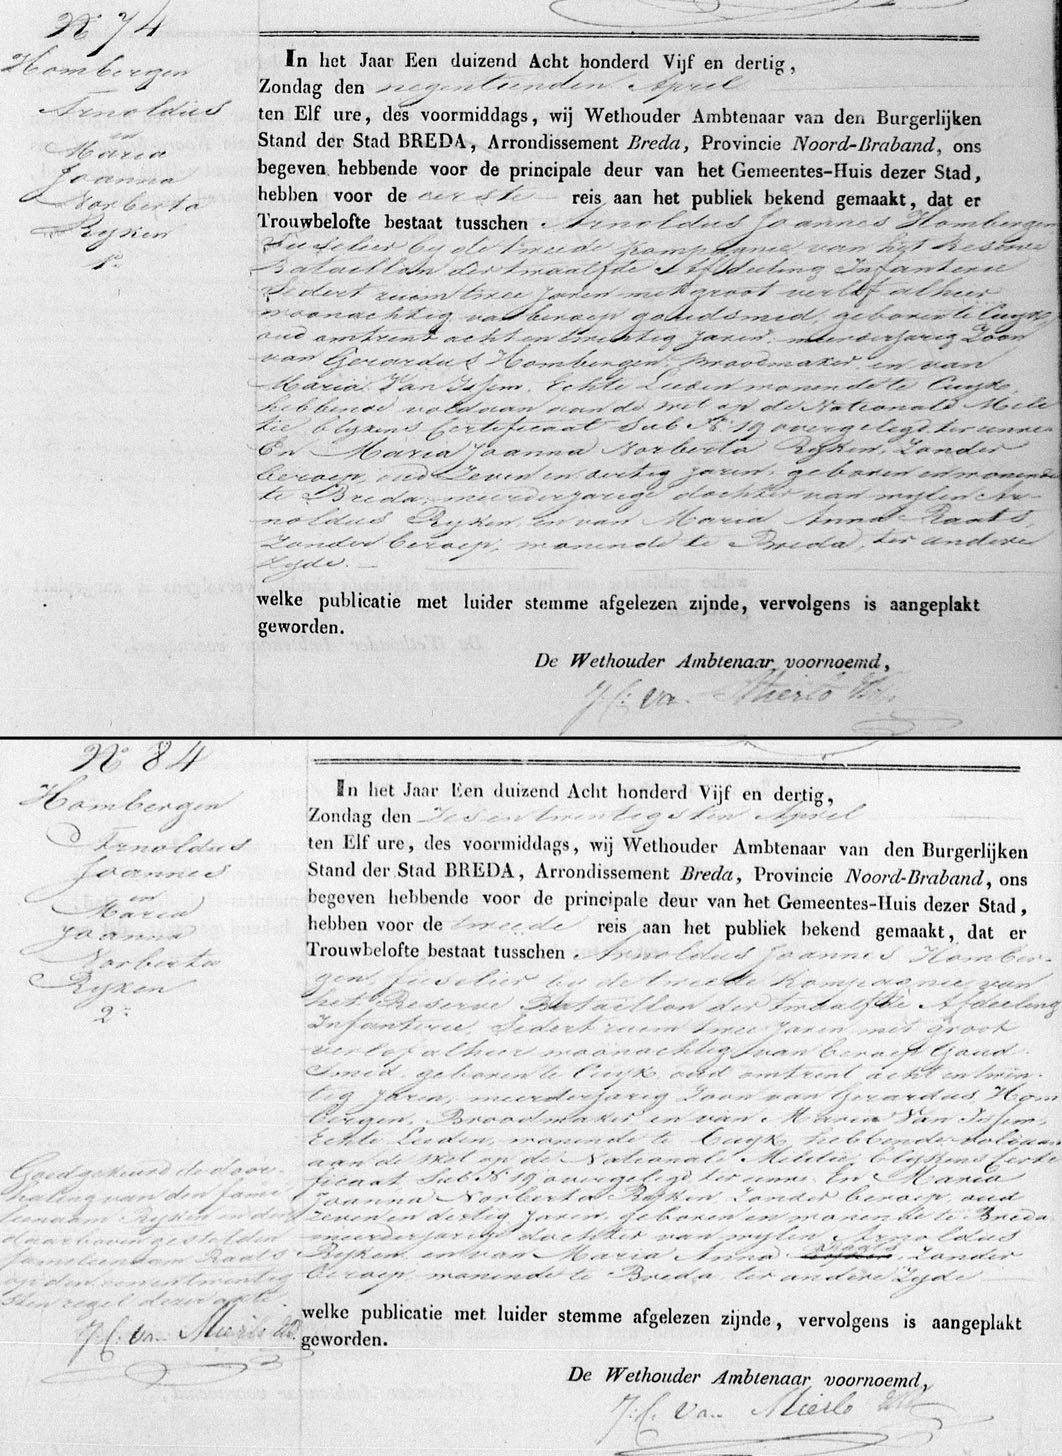 N° 74
Hombergen
Arnoldus
en
Maria
Joanna
Norberta
Ryken
1e
In het Jaar Een duizend Acht honderd Vijf en dertig,
Zondag den negentienden April
ten Elf ure, des voormiddags, wij Wethouder Ambtenaar van den Burgerlijken
Stand der Stad BREDA, Arrondissement Breda, Provincie Noord-Braband, ons
begeven hebbende voor de principale deur van het Gemeentes-Huis dezer Stad,
hebben voor de eerste reis aan het publiek bekend gemaakt, dat er
Trouwbelofte bestaat tusschen Arnoldus Joannes Hombergen
Fuselier bij de tweede Kompagnie van het Reserve
Bataillon der twaalfde Afdeeling Infanterie
sedert ruim twee jaren met groot verlof alhier
woonachtig van beroep goudsmid, geboren te Cuyk
oud omtrent acht en twintig jaren, meerderjarig Zoon
van Gerardus Hombergen, Broodmaker en van
Maria Van Issem, Echte Lieden wonende te Cuyk,
hebbende voldaan aan de wet op de Nationale Mili
tie, blykens Certificaat Sub N° 19 overgelegd ter eenre
En Maria Joanna Norberta Ryken, Zonder
beroep, oud Zeven en dertig jaren, geboren en wonende
te Breda, meerderjarige dochter van wylen Ar-
noldus Ryken, en van Maria Anna Raats,
Zonder beroep, wonende te Breda, ter andere
Zyde.
welke publicatie met luider stemme afgelezen zijnde, vervolgens is aangeplakt
geworden.
De Wethouder Ambtenaar voornoemd,
J. C. van Mierlo
N° 84
Hombergen
Arnoldus
Joannes
en
Maria
Joanna
Norberta
Ryken
2e
In het Jaar Een duizend Acht honderd Vijf en dertig,
Zondag den Zesentwintigsten April
ten Elf ure, des voormiddags, wij Wethouder Ambtenaar van den Burgerlijken
Stand der Stad BREDA, Arrondissement Breda, Provincie Noord-Braband, ons
begeven hebbende voor de principale deur van het Gemeentes-Huis dezer Stad,
hebben voor de tweede reis aan het publiek bekend gemaakt, dat er
Trouwbelofte bestaat tusschen Arnoldus Joannes Homber-
gen, fuselier bij de tweede Kompagnie van
het Reserve Bataillon der twaalfde Afdeeling
Infanterie, Sedert ruim twee jaren met groot
verlof alhier woonachtig, van beroep Goud
Smid, geboren te Cuyk, oud omtrent acht en twin-
tig jaren, meerderjarig Zoon van Gerardus Hom
bergen, Broodmaker en van Maria Van Issem,
Echte Lieden, wonende te Cuyk, hebbende voldaan
aan de Wet op de Nationale Militie, blykens Certi
ficaat Sub N° 19 overgelegd ter eenre En Maria
Joanna Norberta Ryken, Zonder beroep, oud
Zeven en dertig jaren, geboren en wonende te Breda
meerderjarige dochter van wylen Arnoldus
Ryken, en van Maria Anna Raats, Zonder
beroep, wonende te Breda, ter andere Zyde
Goedgekeurd de door-
haling van den fami
lienaam Ryken en den
daarboven gestelden
familienaam Raats
op den eenentwintig
sten regel dezer akte
J. C. van Mierlo
welke publicatie met luider stemme afgelezen zijnde, vervolgens is aangeplakt
geworden.
De Wethouder Ambtenaar voornoemd,
J. C. van Mierlo